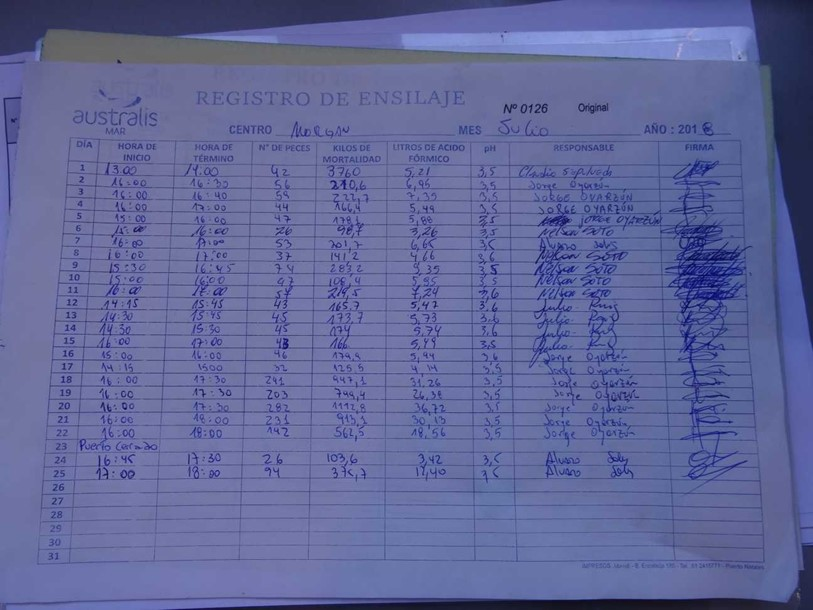 australis
MAR
REGISTRO DE ENSILAJE
Nº 0126 Original
CENTRO Morgan MES Julio AÑO : 2018
DÍA HORA DE INICIO HORA DE TÉRMINO N° DE PECES KILOS DE MORTALIDAD LITROS DE ACIDO FÓRMICO pH RESPONSABLE FIRMA
1 13:00 14:00 42 3760 5,21 3,5 Claudio Sepulveda
2 16:00 16:30 56 210,6 6,95 3,5 Jorge Oyarzún
3 16:00 16:40 59 222,7 7,35 3,5 JORGE OYARZÚN
4 16:00 17:00 44 166,4 5,49 3,5 JORGE OYARZÚN
5 15:00 16:00 47 178,1 5,88 3,5 JORGE OYARZÚN
6 15:00 16:00 26 98,7 3,26 3,5 Nelson SOTO
7 16:00 17:00 53 201,7 6,65 3,5 Alvaro Solis
8 16:00 17:00 37 141,2 4,66 3,6 Nelson SOTO
9 15:30 16:45 74 283,2 9,35 3,5 Nelson SOTO
10 15:00 16:00 5,95 3,5 Nelson SOTO
11 16:00 17:00 57 219,5 7,24 3,6 Nelson SOTO
12 14:15 15:45 43 165,7 5,47 3,6 Julio
13 14:30 15:45 45 173,7 5,73 3,6 Julio
14 14:30 15:30 45 174 5,74 3,6 Julio
15 16:00 17:00 43 166 5,49 3,5 Julio
16 15:00 16:00 46 179,9 5,94 3,6 Jorge Oyarzún
17 14:15 1500 32 125,5 4,14 3,5 Jorge Oyarzún
18 16:00 17:30 241 947,1 31,26 3,5 Jorge Oyarzún
19 16:00 17:30 203 799,4 26,38 3,5 Jorge Oyarzún
20 16:00 17:30 282 1112,8 36,72 3,5 Jorge Oyarzún
21 16:00 18:00 231 913,1 30,13 3,5 Jorge Oyarzún
22 16:00 18:00 142 562,5 18,56 3,5 Jorge Oyarzún
23 Puerto Cerrado
24 16:45 17:30 26 103,6 3,42 3,5 Alvaro Solis
25 17:00 18:00 94 375,7 12,40 3,5 Alvaro Solis
26
27
28
29
30
31